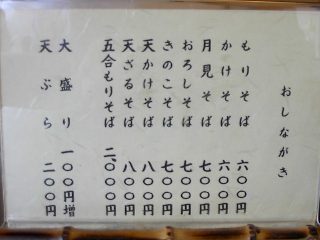 おしながき
もりそば 六〇〇円
かけそば 六〇〇円
月見そば 七〇〇円
おろしそば 七〇〇円
きのこそば 七〇〇円
天かけそば 八〇〇円
天ざるそば 八〇〇円
五合もりそば 二、〇〇〇円
大盛り 一〇〇円増
天ぷら 二〇〇円